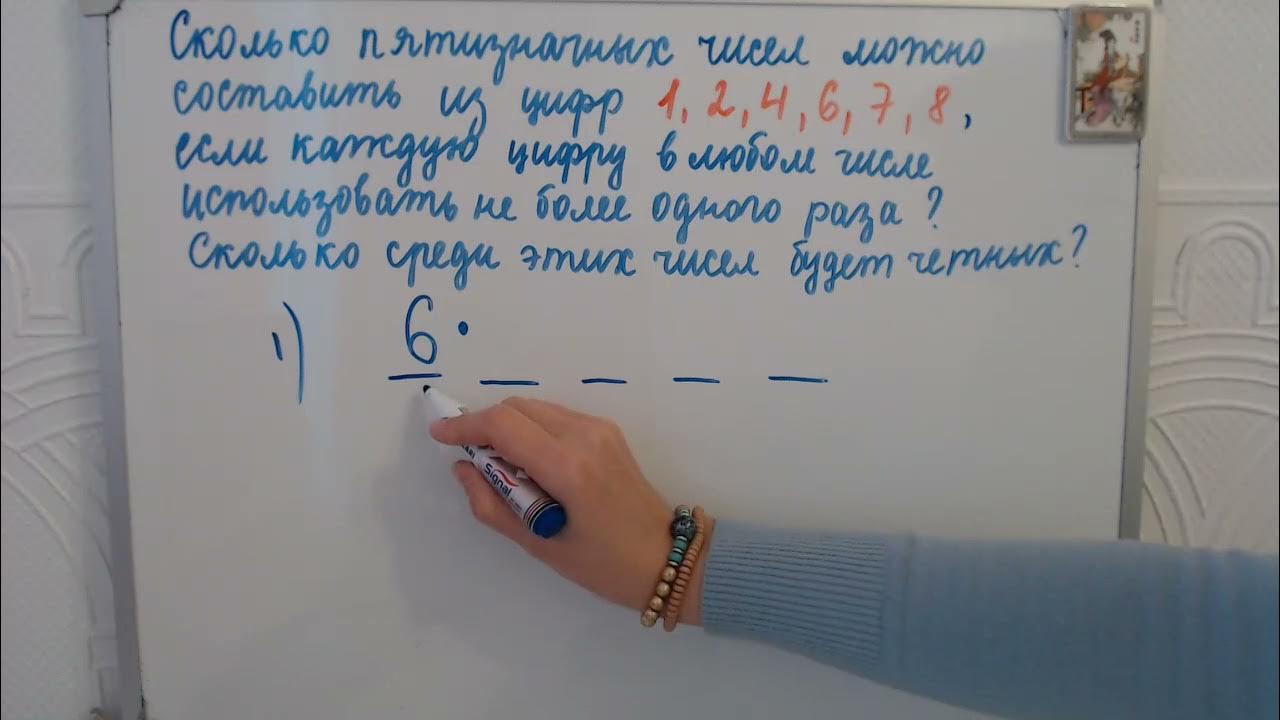 Сколько пятизначных чисел можно
составить из цифр 1, 2, 4, 6, 7, 8,
если каждую цифру в любом числе
использовать не более одного раза?
Сколько среди этих чисел будет четных?
1) 6 ·
Signal